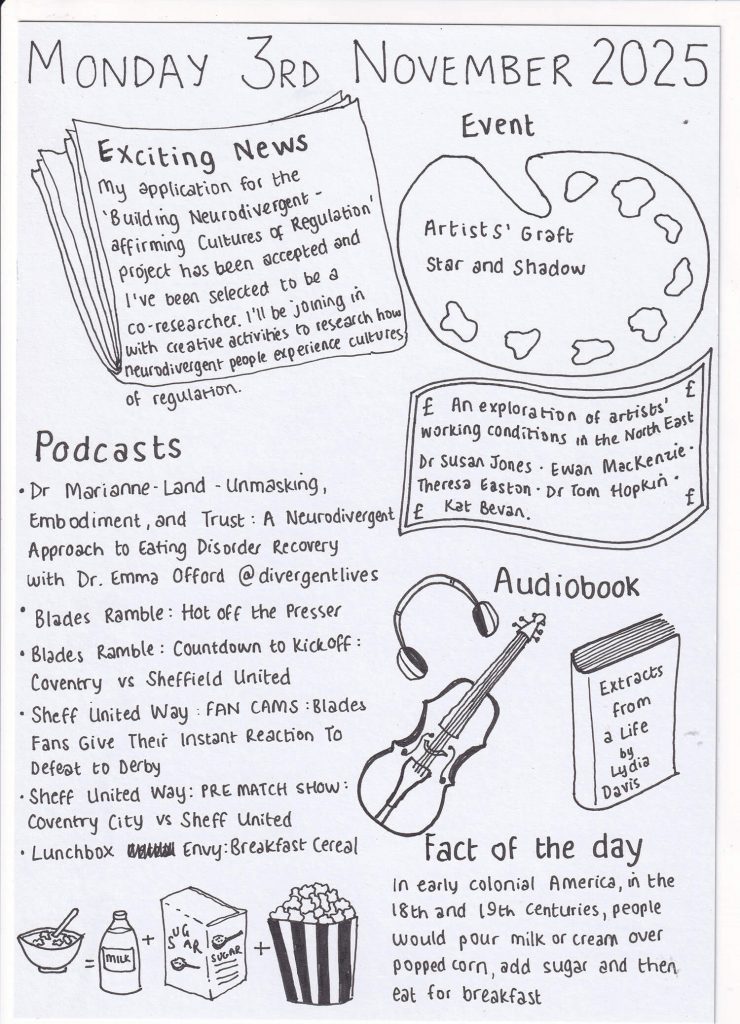 MONDAY 3RD NOVEMBER 2025
Exciting News
My application for the
'Building Neurodivergent-
affirming Cultures of Regulation'
project has been accepted and
I've been selected to be a
co-researcher. I'll be joining in
with creative activities to research how
neurodivergent people experience cultures
of regulation.
Event
Artists' Graft
Star and Shadow
£ An exploration of artists' £
working conditions in the North East
Dr Susan Jones · Ewan MacKenzie ·
Theresa Easton · Dr Tom Hopkin ·
£ Kat Bevan. £
Podcasts
• Dr Marianne-Land - Unmasking,
Embodiment, and Trust: A Neurodivergent
Approach to Eating Disorder Recovery
with Dr. Emma Offord @divergentlives
• Blades Ramble: Hot off the Presser
• Blades Ramble: Countdown to Kickoff:
Coventry vs Sheffield United
• Sheff United Way: FAN CAMS: Blades
Fans Give Their Instant Reaction To
Defeat to Derby
• Sheff United Way: PRE MATCH SHOW:
Coventry City vs Sheff United
• Lunchbox Envy: Breakfast Cereal
Audiobook
Extracts
from
a Life
by
Lydia
Davis
= MILK + SUGAR SUGAR +
Fact of the day
In early colonial America, in the
18th and 19th Centuries, people
would pour milk or cream over
popped corn, add sugar and then
eat for breakfast